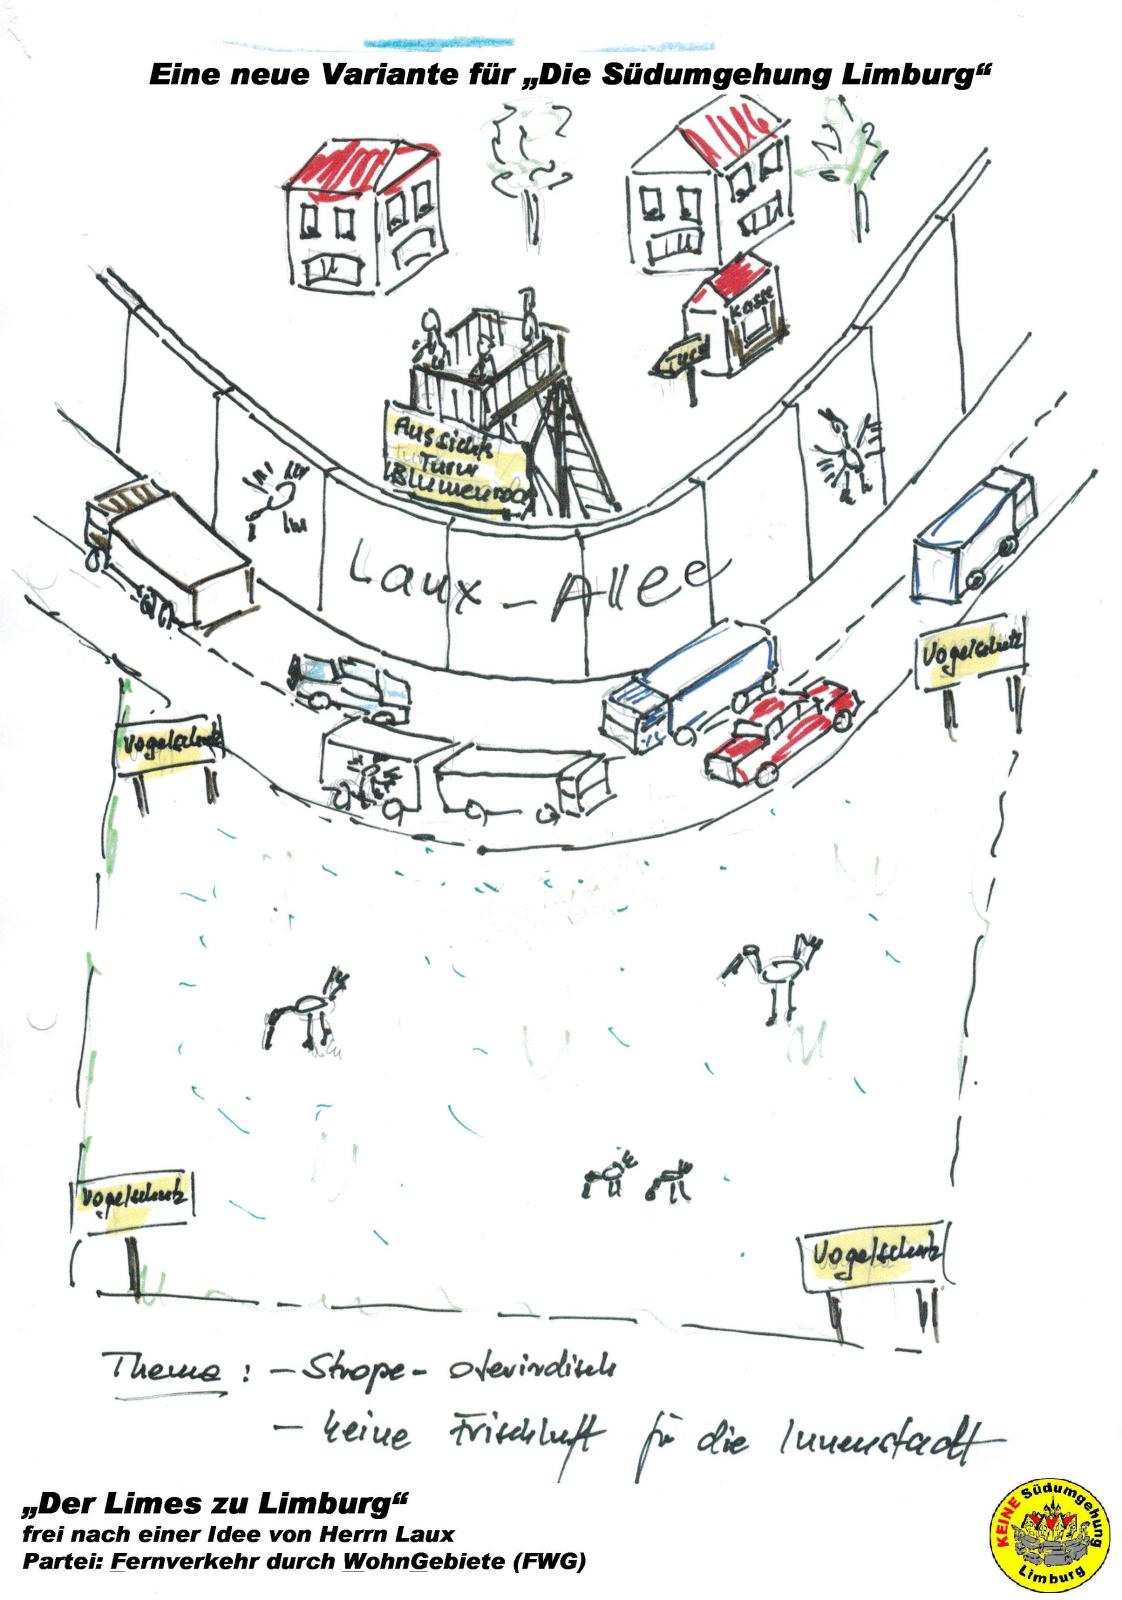 Eine neue Variante für „Die Südumgehung Limburg“
Kasse
Turm
Aussichts
Turm
Blumenrod
Laux-Allee
Vogelschutz
Vogelschutz
Vogelschutz
Vogelschutz
Thema: - Straße - oberirdisch
- keine Frischluft für die Innenstadt
„Der Limes zu Limburg“
frei nach einer Idee von Herrn Laux
Partei: Fernverkehr durch WohnGebiete (FWG)
KEINE Südumgehung
Limburg